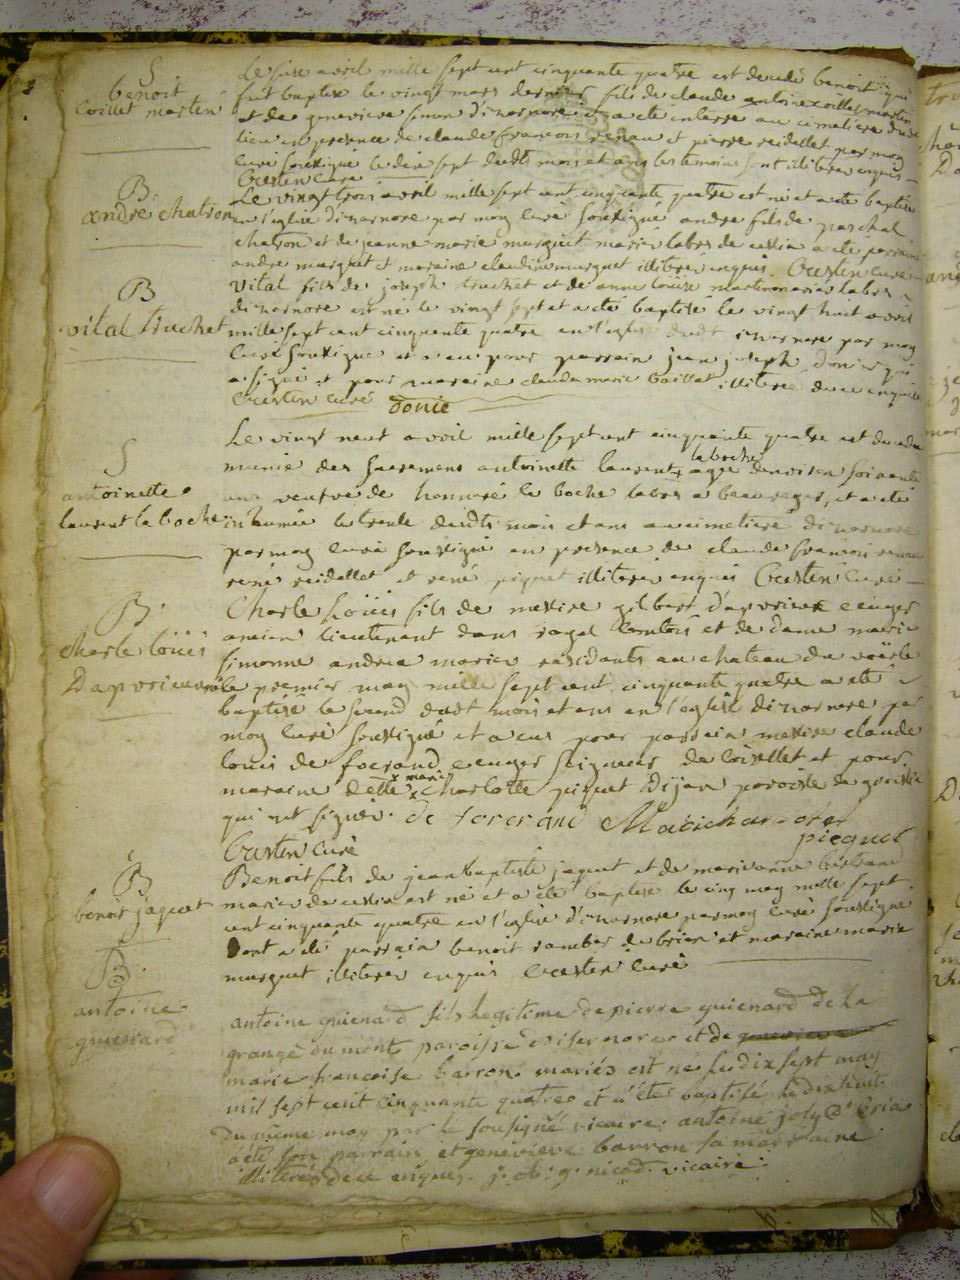 S
benoit
Coillet martin
Le seze avril mille sept cent cinquante quatre est decedé benoit qui
fut baptise le vingt mars dernier fils de claude antoine coillet martin
et de genevieve simon d'izernore et a eté enterre au cimetiere dudit
lieu en presence de claude francois renau et pierre reidellet par moy
curé soussigné le dix sept dudt mois et an les temoins sont illiteres enquis
Crestin curé
B
andré chatron
Le vingt trois avril mille sept cent cinquante quatre est né et a eté baptise
en l'eglise d'izernore par moy curé soussigné andre fils de paschal
chatron et de jeanne marie murguet mariés labrs de cessia a eté parrain
andre murguet et maraine claudine murguet illiteres enquis Crestin curé
B
vital Truchet
Vital fils de joseph truchet et de anne louise martin mariés labrs
dizernore est né le vingt sept et a eté baptisé le vingt huit avril
mille sept cent cinquante quatre en l'eglise dudt izernore par moy
curé soussigné et a eu pour parrain jean joseph donier qui
a signé et pour maraine claudu marie baillat illiterée de ce enquise
Crestin curé donié
S
antoinette
laurent la boche
Le vingt neuf avril mille sept cent cinquante quatre est decedée
munie des sacremens antoinette laurent + la boche agée denviron soixante
ans veufve de honnoré la boche labrs a beauregard, et a eté
inhumée le trente dudts mois et ans au cimetiere dizernore
par moy curé soussigné en presence de claude francois renau
rené reidellet et rené piquet illiterés enquis Crestin curé
B.
Charle Loüis
Dapvrieux
Charle Loüis fils de messire gilbert d'apvrieux ecuyer
ancien lieutenant dans royal Comtois et de dame marie
simonne andrea mariés residants au chateau du voërle
né le premier may mille sept cent cinquante quatre a eté
baptisé le second dudt mois et ans en l'eglise dizernore par
moy curé soussigné et a eus pour parrain messire claude
louis de forcrand ecuyer seigneur de Coisellet et pour
maraine delle + marie Charlotte piquet Dijan paroisse de groissia
qui ont signés. de forcrand Marie charlote
picquet
Crestin curé
B
benoit jaquet
Benoit fils de jean baptiste jaquet et de mariane bertrand
mariés de cessia est né et a eté baptise le cinq may mille sept
cent cinquante quatre en l'eglise d'izernore par moy curé soussigné
dont a eté parrain benoit rambos de brion et maraine marie
murguet illiteres enquis Crestin curé
B.
antoine
guienard
antoine guienard fils legitime de pierre guienard de la
grange du mont paroisse diser nore et de
marie francoise barron mariés est né le dix sept may
mil sept cent cinquante quatre et a été baptisé le dixhuit
du meme may par le soussigné vicaire. antoine joly d'
a été son parrain et genevieve barron sa marraine
illiteres de ce enquis. j. ob. g. nicod. vicaire.